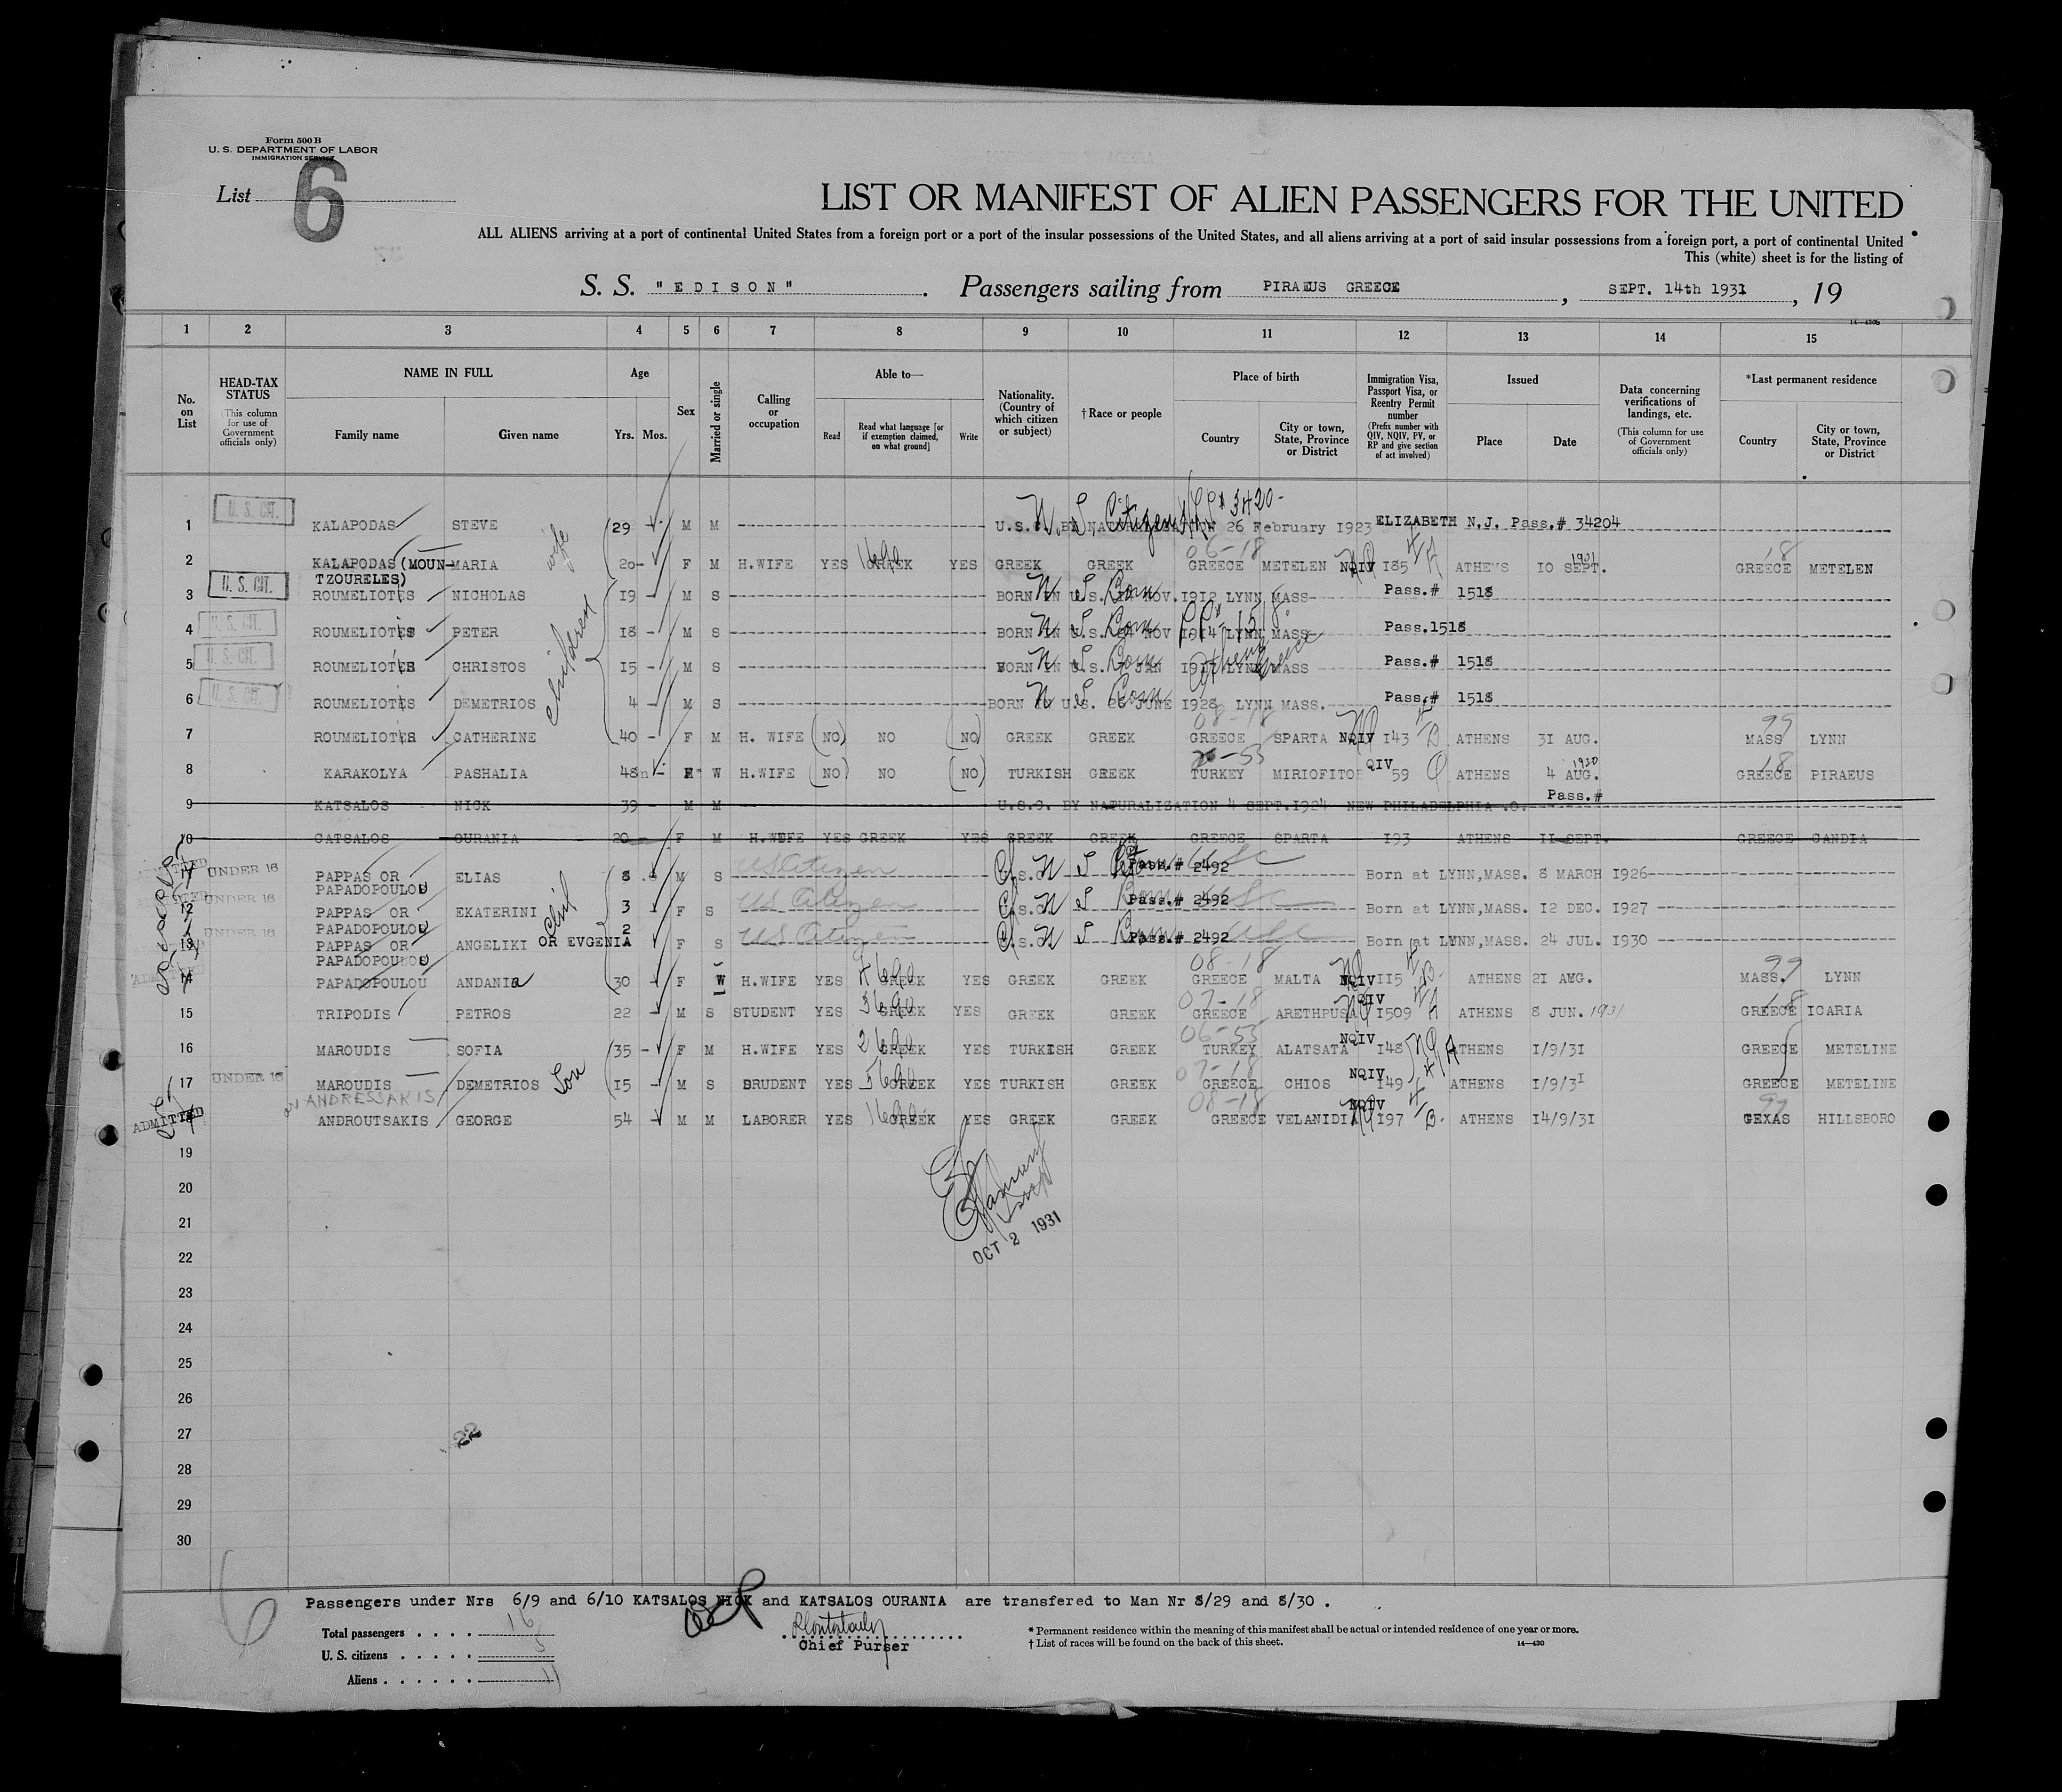 Form 500 B
U. S. DEPARTMENT OF LABOR
IMMIGRATION SERVICE
List 6
LIST OR MANIFEST OF ALIEN PASSENGERS FOR THE UNITED
ALL ALIENS arriving at a port of continental United States from a foreign port or a port of the insular possessions of the United States, and all aliens arriving at a port of said insular possessions from a foreign port, a port of continental United
This (white) sheet is for the listing of
S. S. "EDISON" . Passengers sailing from PIRAEUS GREECE , SEPT. 14th 1931 , 19
14—430b
1 2 3 4 5 6 7 8 9 10 11 12 13 14 15
No. on List
HEAD-TAX STATUS (This column for use of Government officials only)
NAME IN FULL Family name Given name
Age Yrs. Mos.
Sex
Married or single
Calling or occupation
Able to— Read Read what language [or if exemption claimed, on what ground] Write
Nationality. (Country of which citizen or subject)
† Race or people
Place of birth Country City or town, State, Province or District
Immigration Visa, Passport Visa, or Reentry Permit number (Prefix number with QIV, NQIV, PV, or RP and give section of act involved)
Issued Place Date
Data concerning verifications of landings, etc. (This column for use of Government officials only)
*Last permanent residence Country City or town, State, Province or District
1 U. S. CIT. KALAPODAS STEVE 29 M M U.S.C. BY NATURALIZATION 26 February 1923 ELIZABETH N.J. Pass.# 34204
U. S. Citizen 3420-
2 KALAPODAS (MOUN- MARIA wife 20 F M H.WIFE YES GREEK YES GREEK GREEK GREECE METELEN NQIV 185 ATHENS 10 SEPT. 1931 GREECE METELEN
TZOURELES)
06-18 18
3 U. S. CIT. ROUMELIOTES NICHOLAS 19 M S BORN IN U.S. NOV. 1912 LYNN MASS Pass.# 1518
4 U. S. CIT. ROUMELIOTES PETER 18 M S BORN IN U.S. NOV 1914 LYNN MASS Pass.1518
children
5 U. S. CIT. ROUMELIOTES CHRISTOS 15 M S BORN IN U.S. JAN LYNN MASS Pass.# 1518
6 U. S. CIT. ROUMELIOTES DEMETRIOS 4 M S BORN IN U.S. 26 JUNE 1928 LYNN MASS. Pass.# 1518
7 ROUMELIOTES CATHERINE 40 F M H. WIFE (NO) NO (NO) GREEK GREEK GREECE SPARTA NQIV 143 ATHENS 31 AUG. MASS LYNN
08-18 99
8 KARAKOLYA PASHALIA 48 F W H.WIFE (NO) NO (NO) TURKISH GREEK TURKEY MIRIOFITO QIV 59 Q ATHENS 4 AUG. 1930 GREECE PIRAEUS
18
9 KATSALOS NICK 39 M M U.S.C. BY NATURALIZATION 4 SEPT.1924 NEW PHILADELPHIA .O. Pass.#
10 CATSALOS OURANIA 20 F M H.WIFE YES GREEK YES GREEK GREEK GREECE SPARTA 193 ATHENS 11 SEPT. GREECE CANDIA
11 UNDER 16 PAPPAS OR PAPADOPOULOU ELIAS 8 M S US Citizen Pass.# 2492 Born at LYNN,MASS. 8 MARCH 1926
12 UNDER 16 PAPPAS OR PAPADOPOULOU EKATERINI 3 F S US Citizen Pass.# 2492 Born at LYNN,MASS. 12 DEC. 1927
13 UNDER 16 PAPPAS OR PAPADOPOULOU ANGELIKI OR EVGENIA 2 F S US Citizen Pass.# 2492 Born at LYNN,MASS. 24 JUL. 1930
14 PAPADOPOULOU ANDANIa 30 F W H.WIFE YES GREEK YES GREEK GREEK GREECE MALTA NQIV 115 ATHENS 21 AUG. MASS. LYNN
08-18 99
15 TRIPODIS PETROS 22 M S STUDENT YES GREEK YES GREEK GREEK GREECE ARETHPUSA NQIV 1509 ATHENS 8 JUN. 1931 GREECE ICARIA
07-18 18
16 MAROUDIS SOFIA 35 F M H.WIFE YES GREEK YES TURKISH GREEK TURKEY ALATSATA NQIV 148 ATHENS 1/9/31 GREECE METELINE
06-53
17 UNDER 16 MAROUDIS DEMETRIOS Son 15 M S SRUDENT YES GREEK YES TURKISH GREEK GREECE CHIOS NQIV 149 ATHENS 1/9/31 GREECE METELINE
07-18
or ANDRESSAKIS
ADMITTED ANDROUTSAKIS GEORGE 54 M M LABORER YES GREEK YES GREEK GREEK GREECE VELANIDIA NQIV 197 ATHENS 14/9/31 TEXAS HILLSBORO
08-18 99
19
20
21
OCT 2 1931
22
23
24
25
26
27
28
29
30
Passengers under Nrs 6/9 and 6/10 KATSALOS NICK and KATSALOS OURANIA are transfered to Man Nr 8/29 and 8/30 .
Total passengers . . . . 16
U. S. citizens . . . . . 5
Aliens . . . . . . 11
Chief Purser
* Permanent residence within the meaning of this manifest shall be actual or intended residence of one year or more.
† List of races will be found on the back of this sheet. 14—430